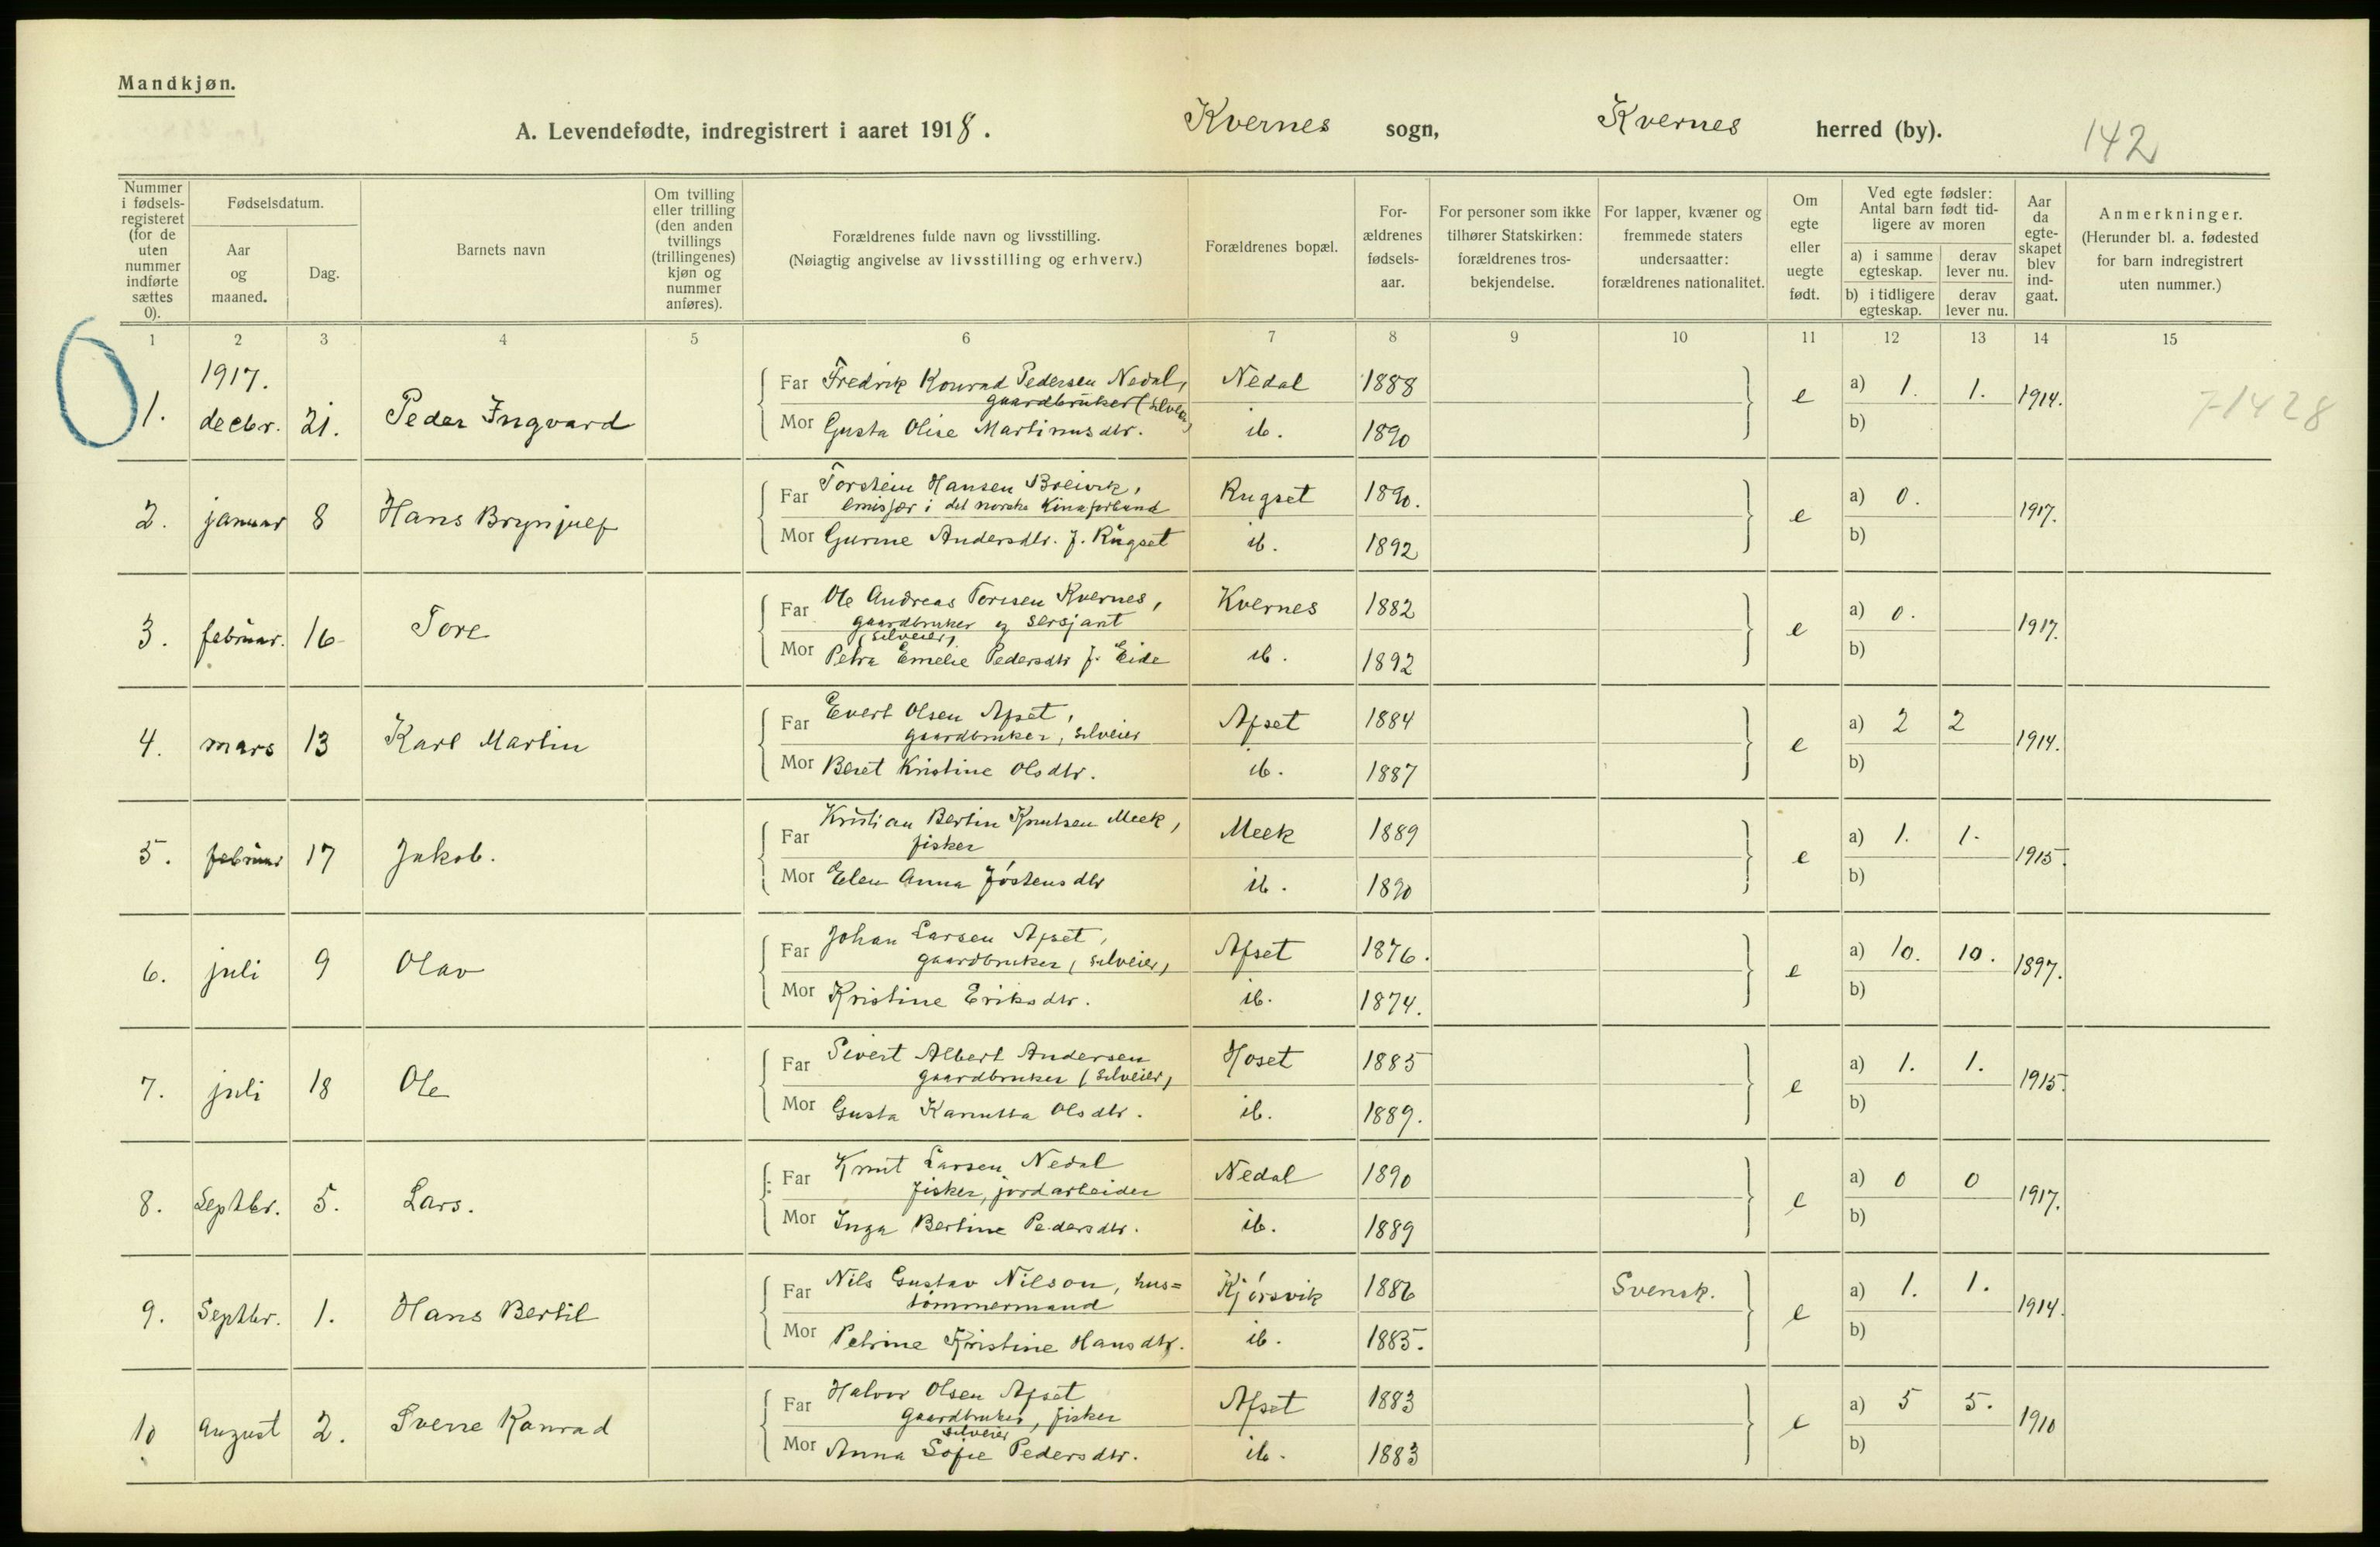 Mandkjøn.
A. Levendefødte, indregistrert i aaret 1918. Kvernes sogn, Kvernes herred (by). 142
Nummer i fødsels-registeret (for de uten nummer indførte sættes 0).
Fødselsdatum.
Aar og maaned.
Dag.
Barnets navn
Om tvilling eller trilling (den anden tvillings (trillingenes) kjøn og nummer anføres).
Forældrenes fulde navn og livsstilling.
(Nøiagtig angivelse av livsstilling og erhverv.)
Forældrenes bopæl.
For-ældrenes fødsels-aar.
For personer som ikke tilhører Statskirken: forældrenes tros-bekjendelse.
For lapper, kvæner og fremmede staters undersaatter: forældrenes nationalitet.
Om egte eller uegte født.
Ved egte fødsler: Antal barn født tid-ligere av moren
a) i samme egteskap. derav lever nu.
b) i tidligere egteskap. derav lever nu.
Aar da egte-skapet blev ind-gaat.
Anmerkninger.
(Herunder bl. a. fødested for barn indregistrert uten nummer.)
1 2 3 4 5 6 7 8 9 10 11 12 13 14 15
1917.
1. decbr. 21. Peder Ingvard
Far Fredrik Konrad Pedersen Nedal, Nedal 1888
gaardbruker (selveier)
Mor Gusta Olise Martinusdtr. ib. 1890
e a) 1. 1. 1914. 7-1428
b)
2. januar 8 Hans Brynjulf
Far Torstein Hansen Breivik, Rugset 1890.
emisfær i det norske Kinaforbund
Mor Gurine Andersdtr. f. Rugset ib. 1892
e a) 0. 1917.
b)
3. februar. 16 Tore
Far Ole Andreas Toresen Kvernes, Kvernes 1882
gaardbruker og sersjant
(selveier)
Mor Petra Emelie Pedersdtr f. Eide ib. 1892
e a) 0. 1917.
b)
4. mars 13 Karl Martin
Far Evert Olsen Afset, Afset 1884
gaardbruker, selveier
Mor Beret Kristine Olsdtr. ib. 1887
e a) 2 2 1914.
b)
5. februar 17 Jakob.
Far Kristian Bertin Knutsen Meek, Meek 1889
fisker
Mor Elen Anna Jóstensdtr ib. 1890
e a) 1. 1. 1915.
b)
6. juli 9 Olav
Far Johan Larsen Afset, Afset 1876.
gaardbruker (selveier)
Mor Kristine Eriksdtr. ib. 1874.
e a) 10. 10. 1897.
b)
7. juli 18 Ole
Far Sivert Albert Andersen Hoset 1885
gaardbruker (selveier)
Mor Gusta Olsdtr. ib. 1889.
e a) 1. 1. 1915.
b)
8. Septbr. 5. Lars.
Far Knut Larsen Nedal Nedal 1890
fisker, jordarbeider
Mor Inga Bertine Pedersdtr. ib. 1889
e a) 0 0 1917.
b)
9. Septbr. 1. Hans Bertil
Far Nils Gustav Nilson, hus= Kjørsvik 1886 Svensk.
tømmermand
Mor Petrine Kristine Hansdtr. ib. 1885.
e a) 1. 1. 1914.
b)
10 august 2. Sverre Konrad
Far Halvor Olsen Afset Afset 1883
gaardbruker, fisker
selveier
Mor Anna Sofie Pedersdtr. ib. 1883
e a) 5 5. 1910
b)